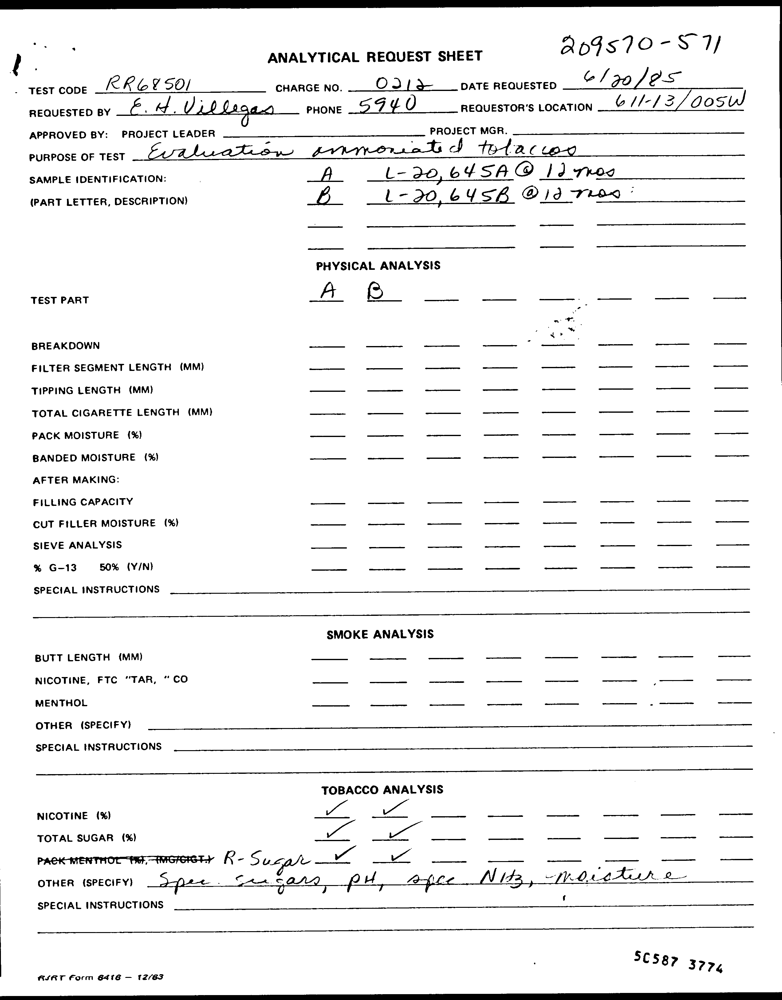 209570-571
ANALYTICAL REQUEST SHEET
TEST CODE RR68501 CHARGE NO. 0212 DATE REQUESTED 6/20/85
REQUESTED BY E. H. Villegas PHONE 5940 REQUESTOR'S LOCATION 611-13/005W
APPROVED BY: PROJECT LEADER PROJECT MGR.
PURPOSE OF TEST Evaluation ammoniated tobaccos
SAMPLE IDENTIFICATION: A L-20,645A @ 12 mos
(PART LETTER, DESCRIPTION) B L-20,645B @ 12 mos
PHYSICAL ANALYSIS
TEST PART A B
BREAKDOWN
FILTER SEGMENT LENGTH (MM)
TIPPING LENGTH (MM)
TOTAL CIGARETTE LENGTH (MM)
PACK MOISTURE (%)
BANDED MOISTURE (%)
AFTER MAKING:
FILLING CAPACITY
CUT FILLER MOISTURE (%)
SIEVE ANALYSIS
% G-13 50% (Y/N)
SPECIAL INSTRUCTIONS
SMOKE ANALYSIS
BUTT LENGTH (MM)
NICOTINE, FTC "TAR, " CO
MENTHOL
OTHER (SPECIFY)
SPECIAL INSTRUCTIONS
TOBACCO ANALYSIS
NICOTINE (%) ✓ ✓
TOTAL SUGAR (%) ✓ ✓
PACK MENTHOL (%), (MG/CIGT.) R-Sugar ✓ ✓
OTHER (SPECIFY) Spec. sugars, pH, spec NH3, moisture
SPECIAL INSTRUCTIONS
RJRT Form 6416 - 12/83
50587 3774